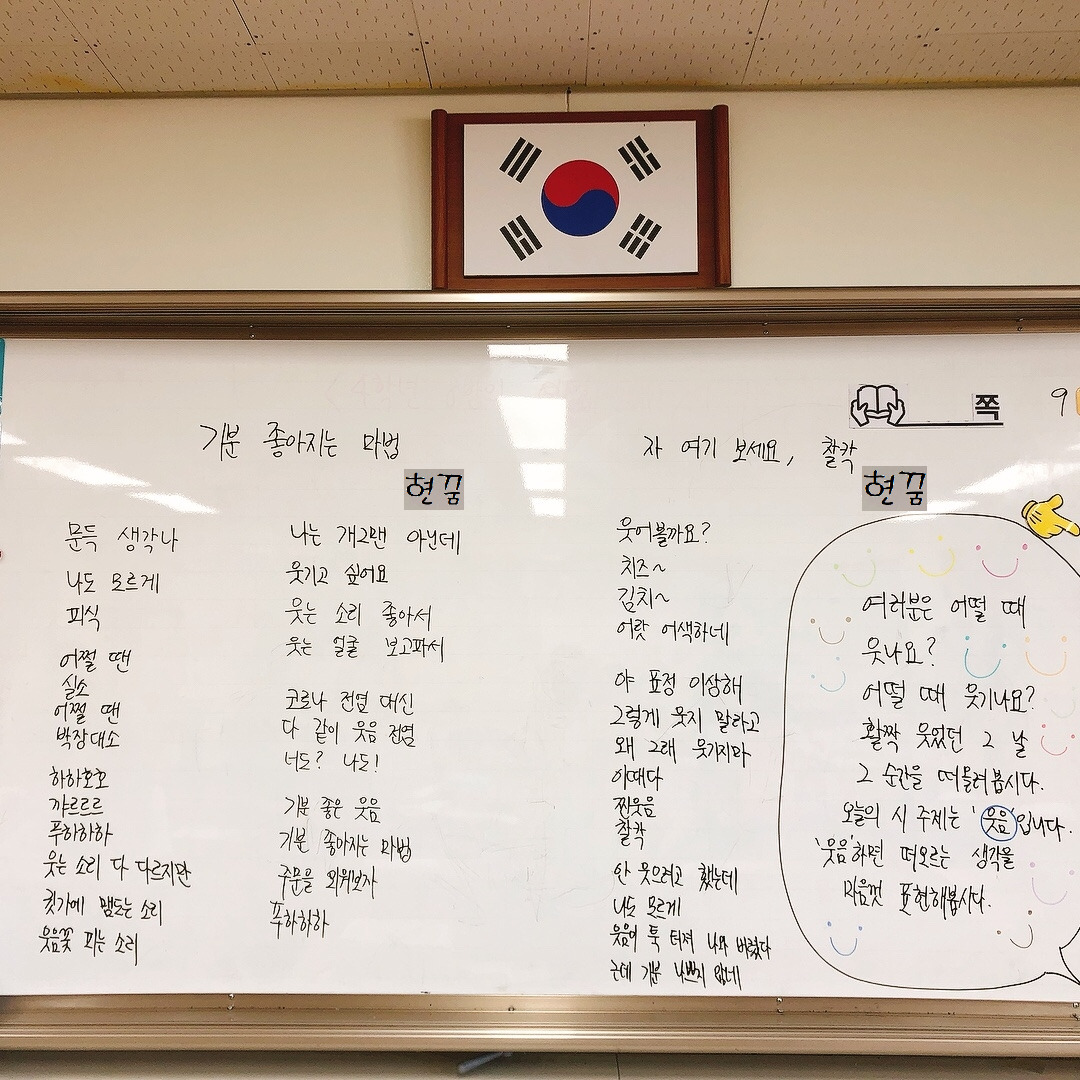 기분 좋아지는 마법
현꿈
문득 생각나
나도 모르게
피식
어쩔 땐
실소
어쩔 땐
박장대소
하하호호
꺄르르르
푸하하하
웃는 소리 다 다르지만
귓가에 맴도는 소리
웃음꽃 피는 소리
나는 개그맨 아닌데
웃기고 싶어요
웃는 소리 좋아서
웃는 얼굴 보고파서
코로나 전염 대신
다 같이 웃음 전염
너도? 나도!
기분 좋은 웃음
기분 좋아지는 마법
주문을 외워보자
푸하하하
자 여기 보세요, 찰칵
현꿈
웃어볼까요?
치즈~
김치~
어랏 어색하네
야 표정 이상해
그렇게 웃지 말라고
왜 그래 웃기지마
이때다
찐웃음
찰칵
안 웃으려고 했는데
나도 모르게
웃음이 툭 터져 나와 버렸다
근데 기분 나쁘지 않네
쪽
9
여러분은 어떨 때
웃나요?
어떨 때 웃기나요?
활짝 웃었던 그 날
그 순간을 떠올려봅시다.
오늘의 시 주제는 '웃음'입니다.
'웃음'하면 떠오르는 생각을
마음껏 표현해봅시다.